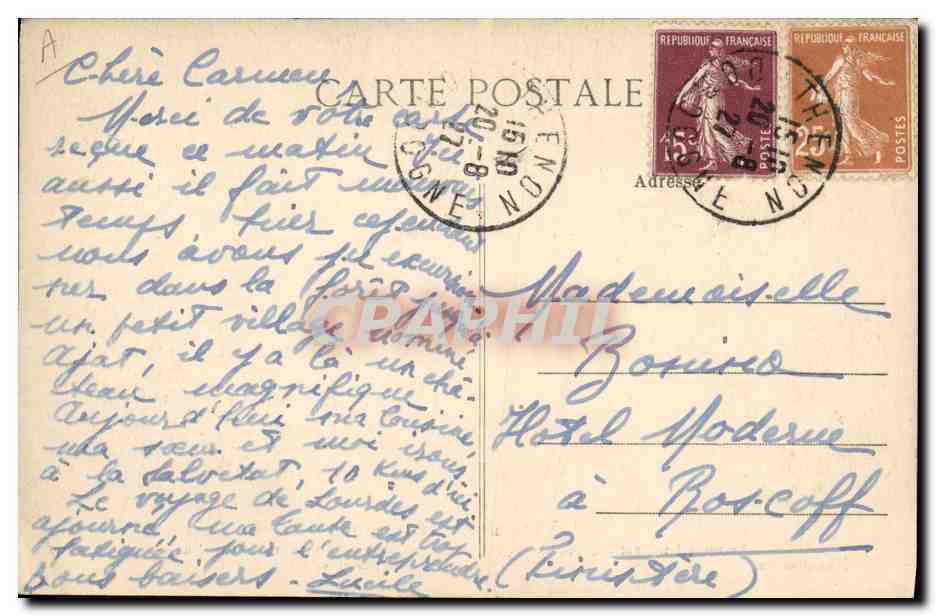 A
CARTE POSTALE
Chère Carmen
Merci de votre carte
reçue ce matin. Ici
aussi il fait mauvais
temps hier cependant
nous avons pu excursion
ner dans la forêt jusqu'à
un petit village nommé
Ajat, il y a là un châ-
teau magnifique
Aujourd'hui ma cousine
ma sœur et moi irons
à la Salvetat, 10 kms d'ici
Le voyage de Lourdes est
ajourné, ma tante est trop
fatiguée pour l'entreprendre.
bons baisers - Lucile
THENON
15 10
20 -8
27
DOGNE
REPUBLIQUE FRANÇAISE
15
POSTES
REPUBLIQUE FRANÇAISE
25
POSTES
THENON
15 10
20 -8
27
DOGNE
Adresse
Mademoiselle
Hôtel Moderne
à Roscoff
(Finistère)
CPAPHIL